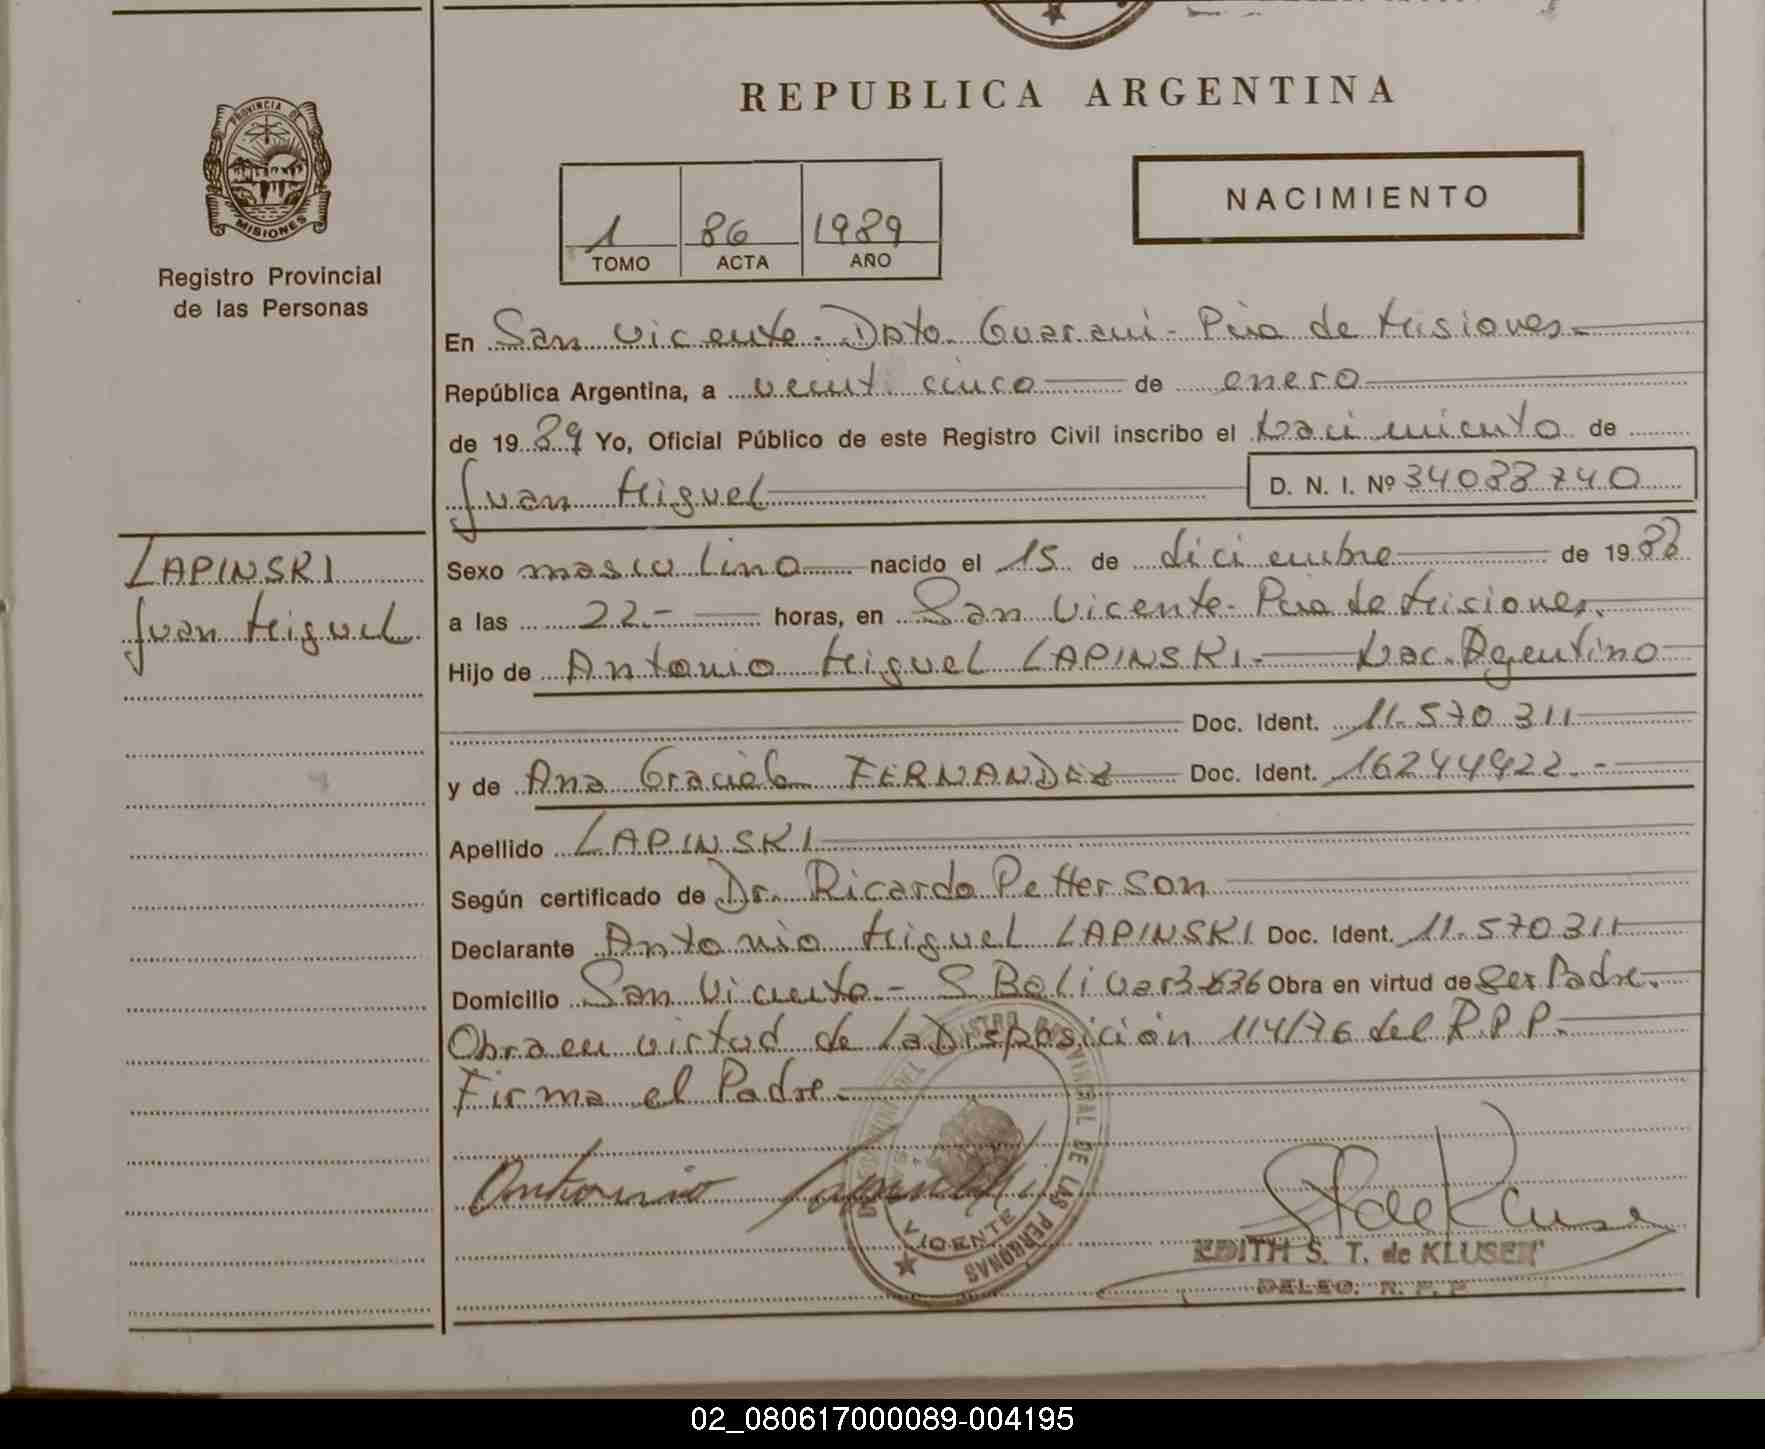 REPUBLICA ARGENTINA
PROVINCIA DE
MISIONES
Registro Provincial
de las Personas
NACIMIENTO
1 86 1989
TOMO ACTA AÑO
En San Vicente - Dpto. Guarani - Pcia de Misiones.-
República Argentina, a veint. cinco de enero
de 1989 Yo, Oficial Público de este Registro Civil inscribo el Nacimiento de
Juan Miguel D. N. I. Nº 34088740
LAPINSKI
Juan Miguel
Sexo masculino nacido el 15 de diciembre de 1988
a las 22.- horas, en San Vicente - Pcia de Misiones.
Hijo de Antonio Miguel LAPINSKI.- Nac. Agentino
Doc. Ident. 11.570311
y de Ana Graciela FERNANDEZ Doc. Ident. 16244922.-
Apellido LAPINSKI
Según certificado de Dr. Ricardo Petterson
Declarante Antonio Miguel LAPINSKI Doc. Ident. 11.570311
Domicilio San Vicente - S Bolivar 636 Obra en virtud de Ser Padre.
Obra en virtud de la Disposición 114/76 del R.P.P.
Firma el Padre.
Antonio
REGISTRO PROVINCIAL DE LAS PERSONAS
SAN VICENTE
EDITH S. T. de KLUSEN
DELEG. R. P. P.
02_080617000089-004195